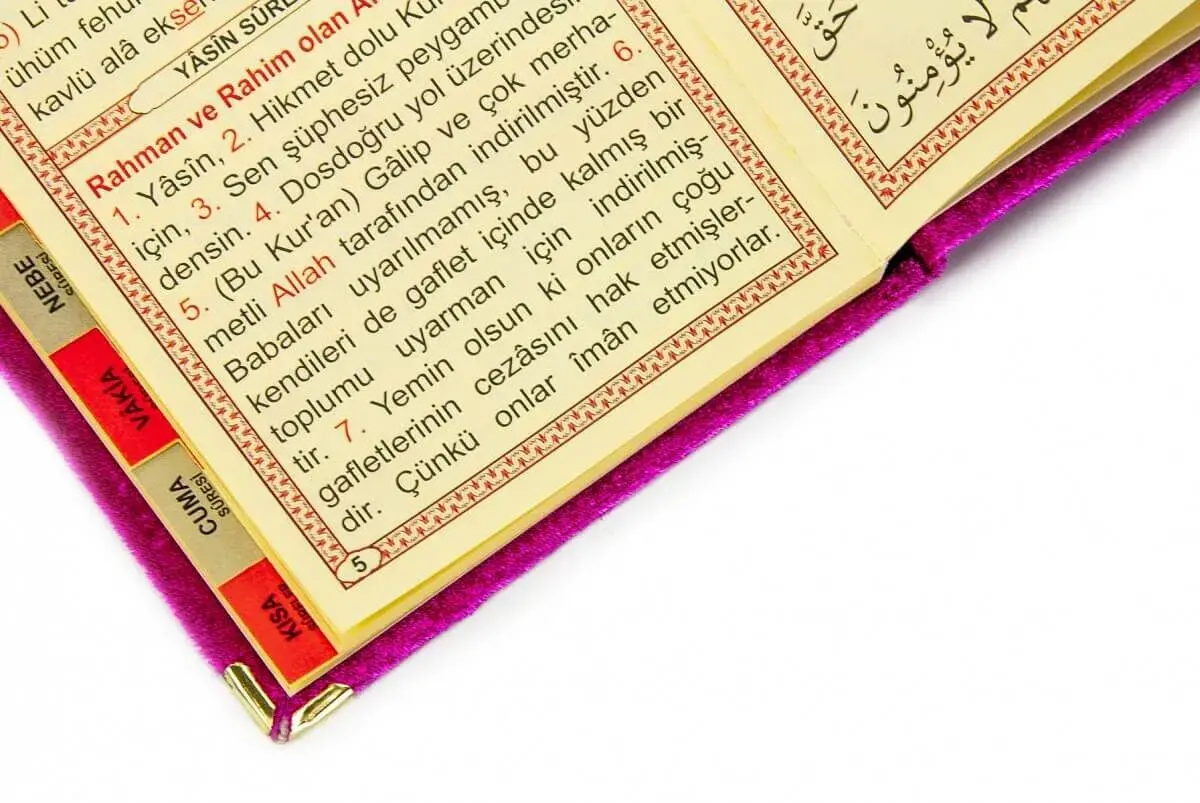 Li
ühüm
kavlü alâ
YÂSÎN
Rahman ve Rahim olan
1. Yâsîn, 2. Hikmet dolu
için, 3. Sen şüphesiz
densin. 4. Dosdoğru yol üzerindesin
5. (Bu Kur'an) Gâlip ve çok merha-
metli Allah tarafından indirilmiştir. 6.
Babaları uyarılmamış, bu yüzden
kendileri de gaflet içinde kalmış bir
toplumu uyarman için indirilmiş-
tir. 7. Yemin olsun ki onların çoğu
gafletlerinin cezâsını hak etmişler-
dir. Çünkü onlar îmân etmiyorlar.
5
NEBE
SÛRESİ
VÂKIA
CUMA
SÛRESİ
KISA
SÛRELER
حَقَّ
لَا يُؤْمِنُونَ